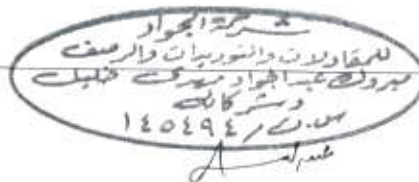 شركة الجواد
للمقاولات والتوريدات والرصف
مبروك عبد الجواد مهدى خليل
وشركائه
س.ت / ١٤٥٤٩٤